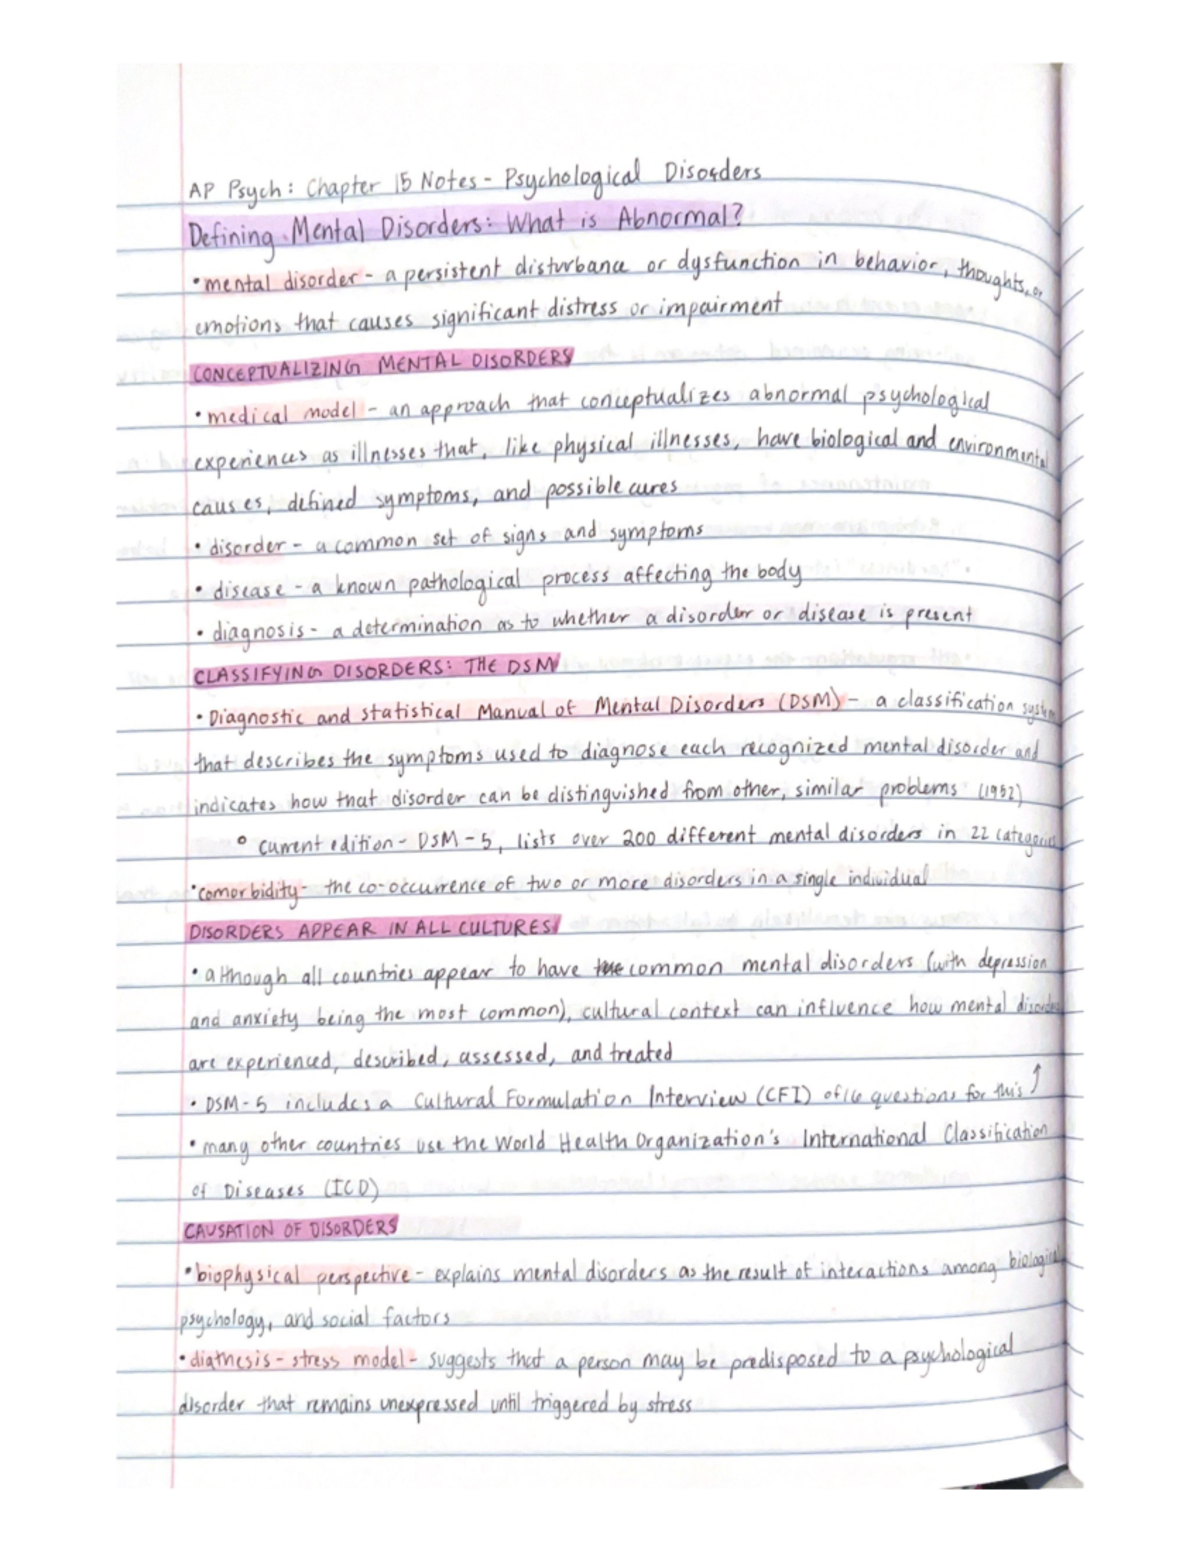 AP Psych: Chapter 15 Notes - Psychological Disorders
Defining Mental Disorders: What is Abnormal?
• mental disorder - a persistent disturbance or dysfunction in behavior, thoughts, or
emotions that causes significant distress or impairment
CONCEPTUALIZING MENTAL DISORDERS
• medical model - an approach that conceptualizes abnormal psychological
experiences as illnesses that, like physical illnesses, have biological and environmental
causes, defined symptoms, and possible cures
• disorder - a common set of signs and symptoms
• disease - a known pathological process affecting the body
• diagnosis - a determination as to whether a disorder or disease is present
CLASSIFYING DISORDERS: THE DSM
• Diagnostic and Statistical Manual of Mental Disorders (DSM) - a classification system
that describes the symptoms used to diagnose each recognized mental disorder and
indicates how that disorder can be distinguished from other, similar problems (1952)
° current edition - DSM-5, lists over 200 different mental disorders in 22 categories
• comorbidity - the co-occurrence of two or more disorders in a single individual
DISORDERS APPEAR IN ALL CULTURES
• although all countries appear to have common mental disorders (with depression
and anxiety being the most common), cultural context can influence how mental disorders
are experienced, described, assessed, and treated
• DSM-5 includes a Cultural Formulation Interview (CFI) of 16 questions for this ↑
• many other countries use the World Health Organization's International Classification
of Diseases (ICD)
CAUSATION OF DISORDERS
• biophysical perspective - explains mental disorders as the result of interactions among biological
psychology, and social factors
• diathesis-stress model - suggests that a person may be predisposed to a psychological
disorder that remains unexpressed until triggered by stress